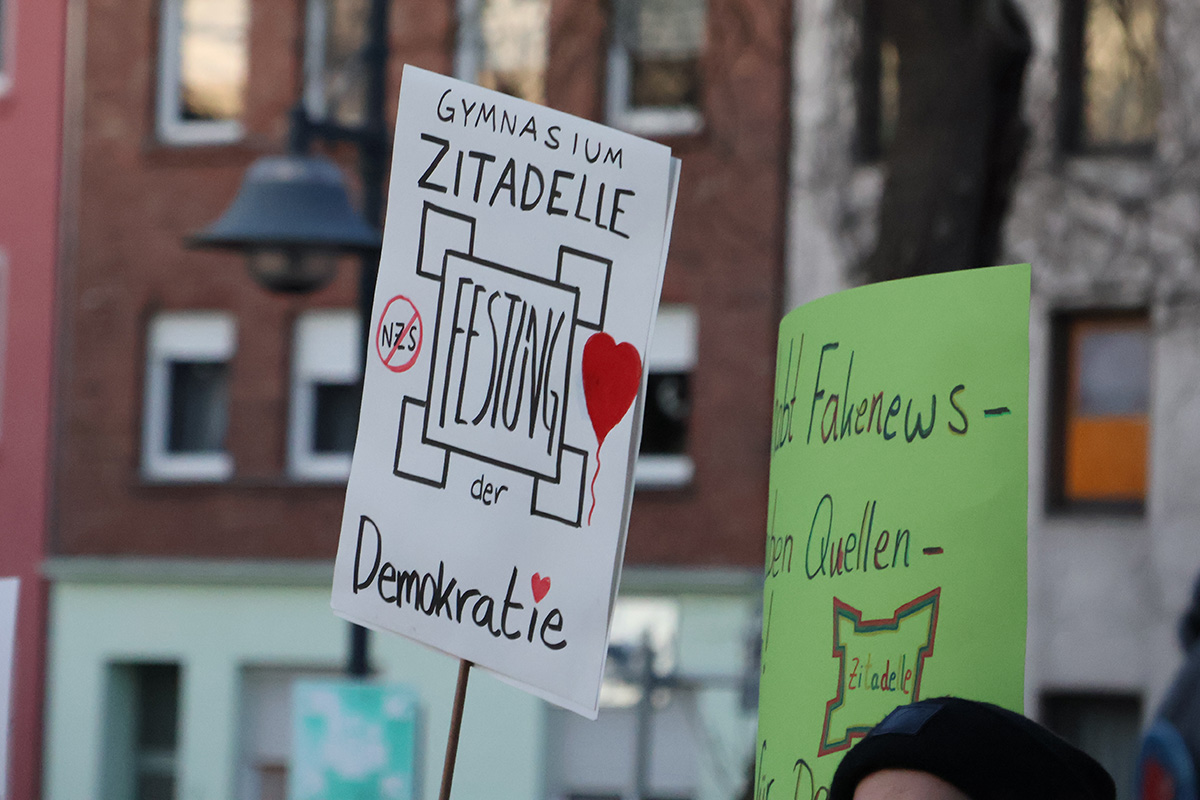 GYMNASIUM
ZITADELLE
NZS
FESTUNG
der
Demokratie
Fakenews-
Quellen-
Zitadelle